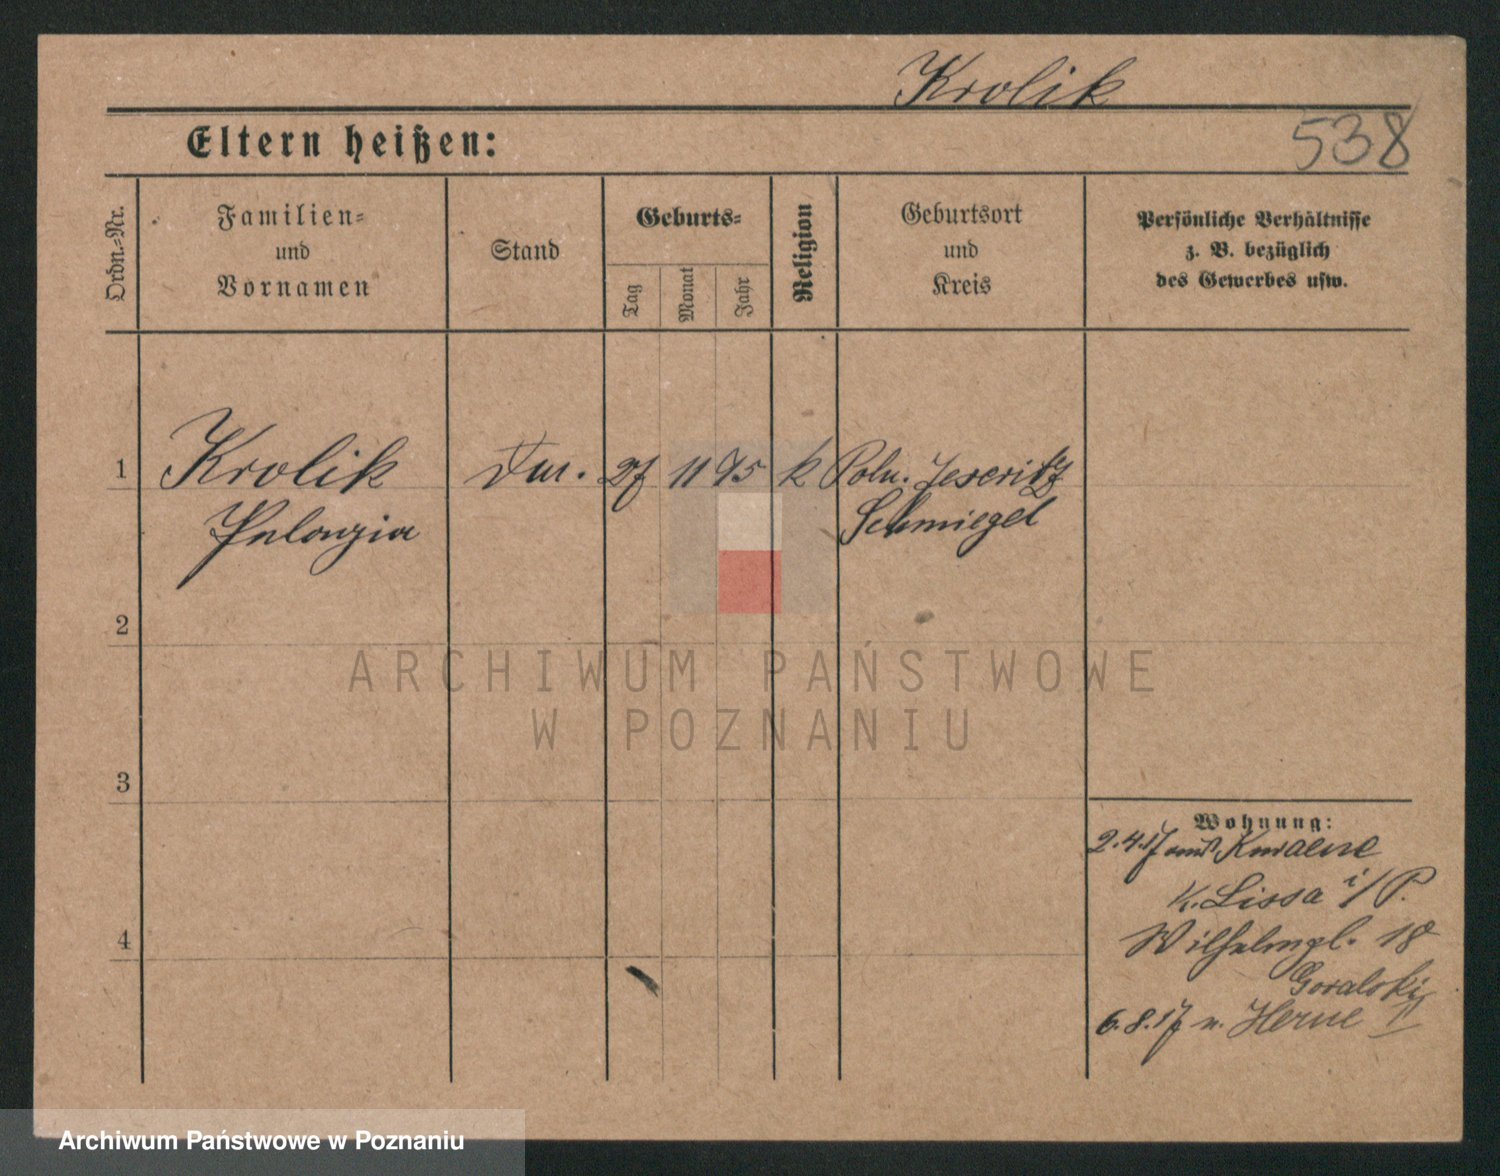 Krolik
Eltern heißen:
538
Ordn.-Nr.
Familien-
und
Vornamen
Stand
Geburts-
Tag
Monat
Jahr
Religion
Geburtsort
und
Kreis
Persönliche Verhältnisse
z. B. bezüglich
des Gewerbes usw.
1 Krolik 27 11 95 k Poln. Jeseritz
Pelagia Schmiegel
2
3
4
Wohnung:
2.4.17 aus
K. Lissa i/P.
Wilhelmpl. 18
Goralski
6.8.17 n. Herne
ARCHIWUM PAŃSTWOWE
W POZNANIU
Archiwum Państwowe w Poznaniu